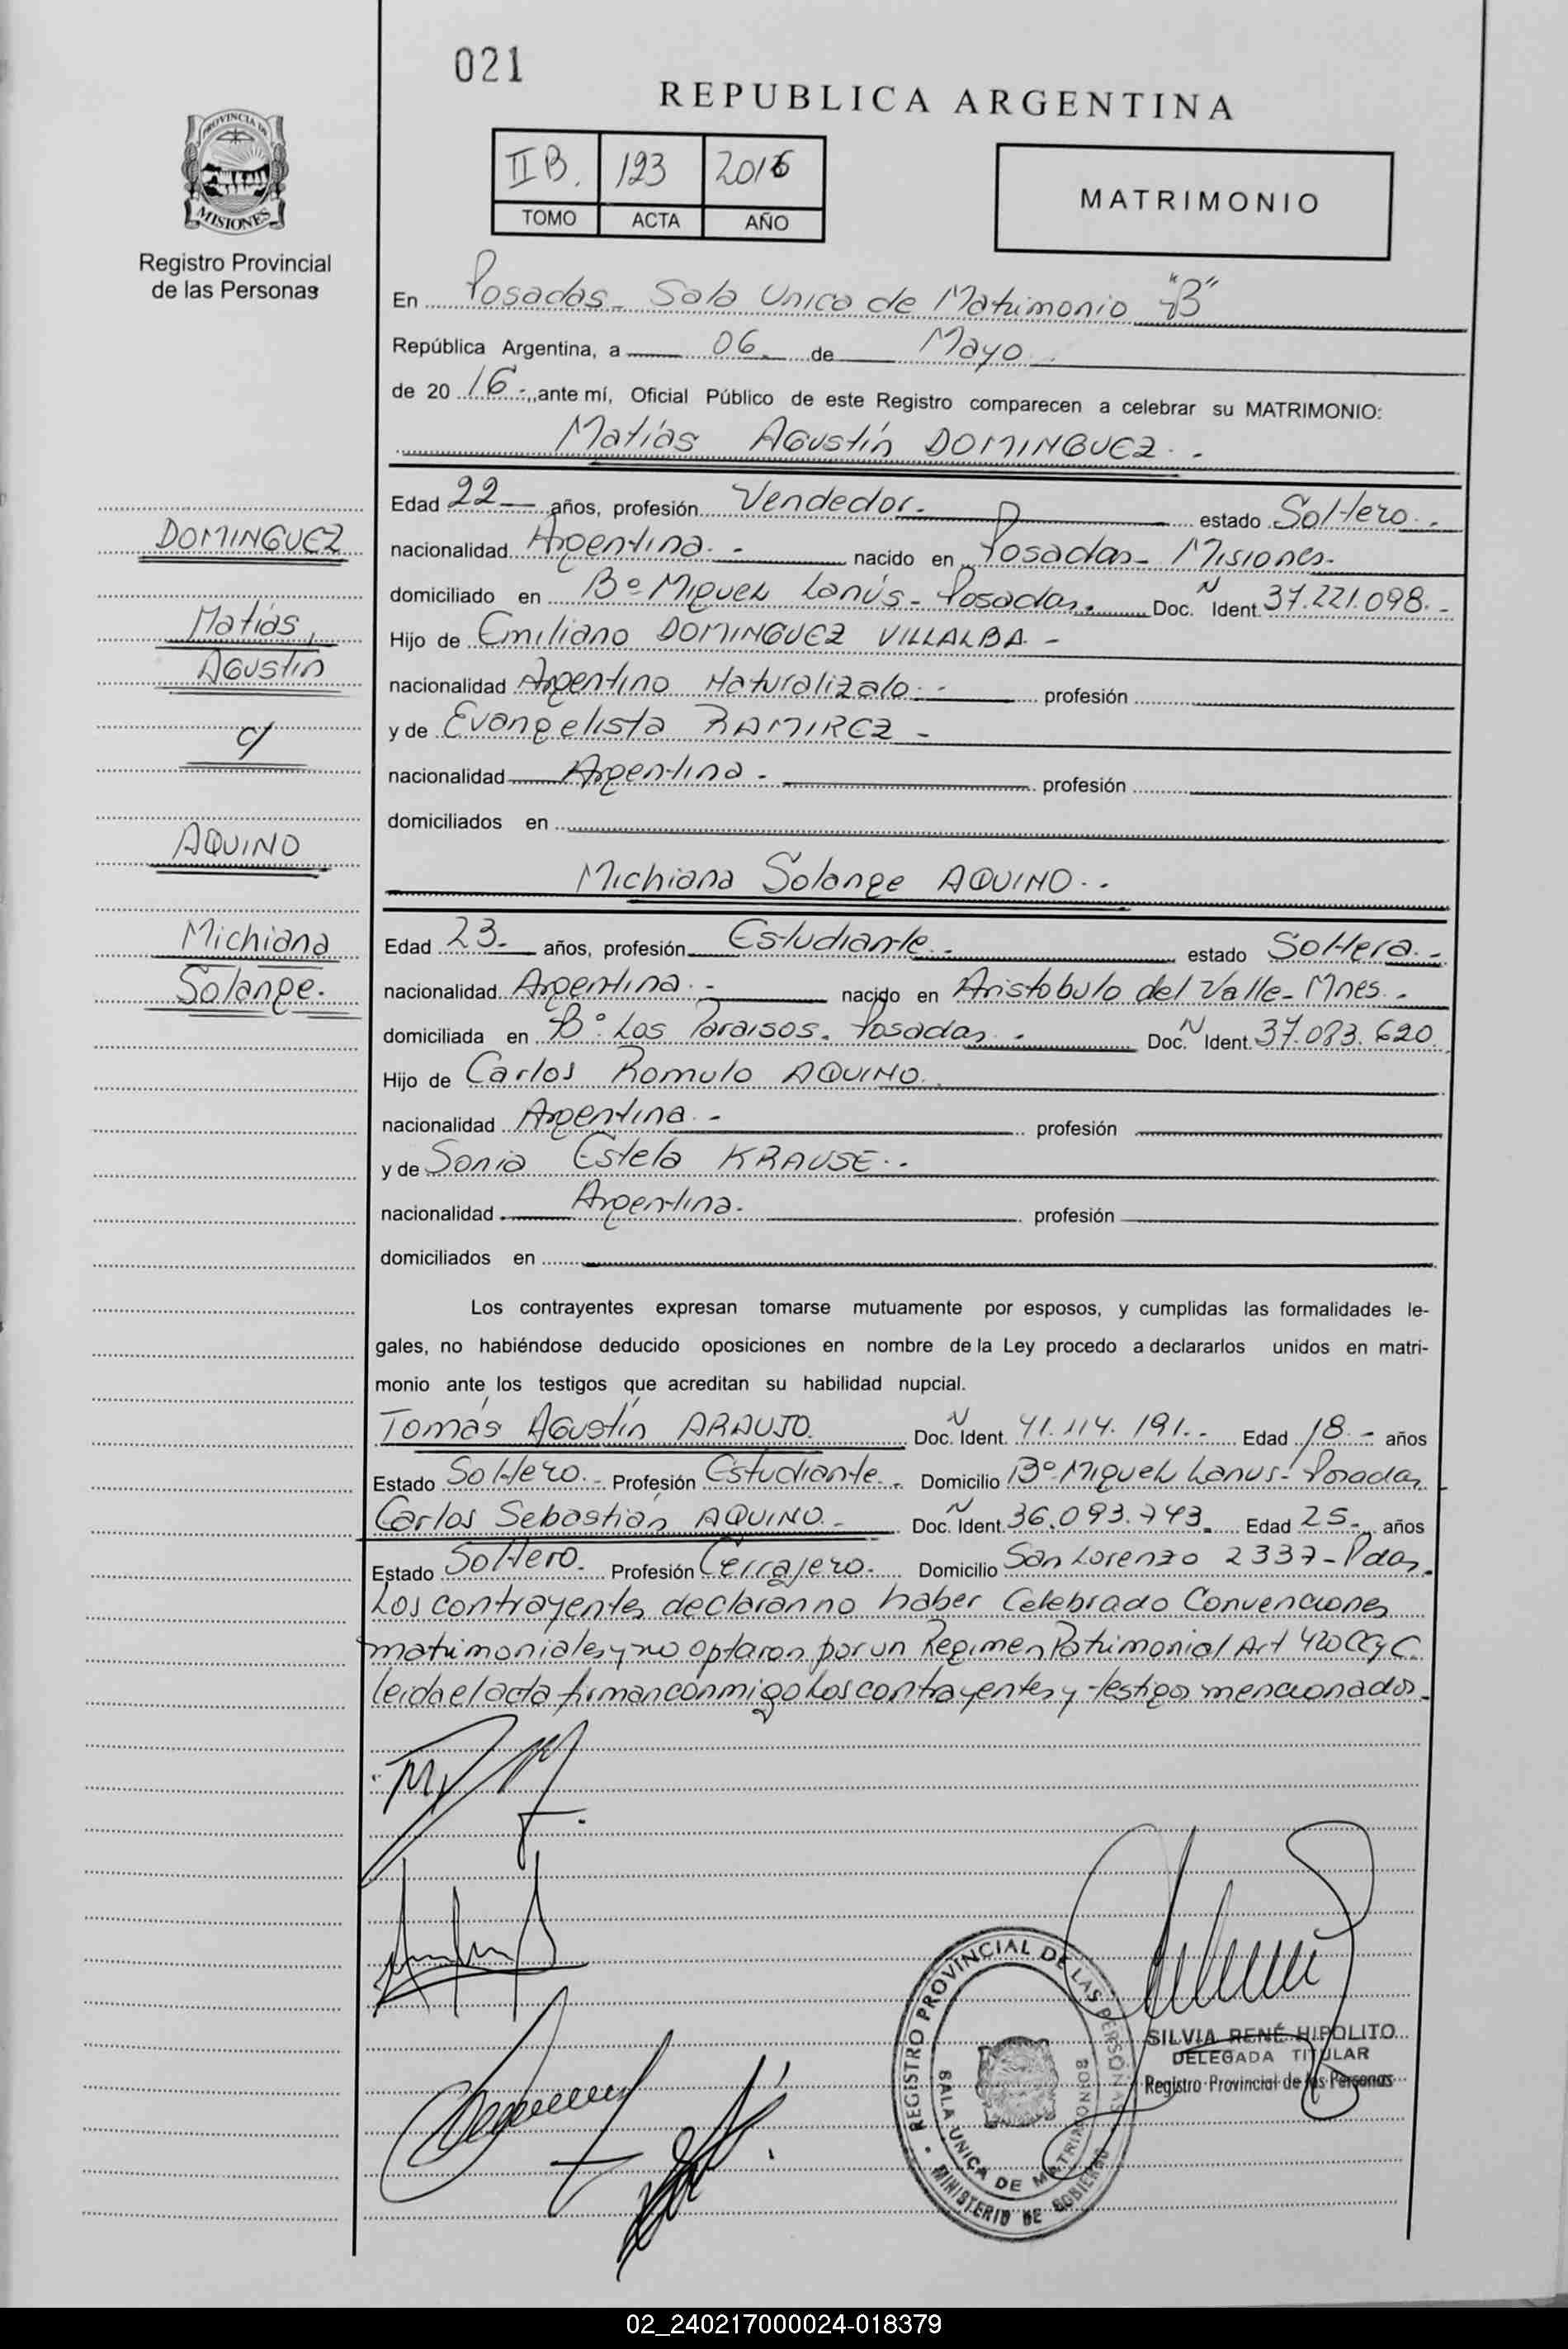 021
REPUBLICA ARGENTINA
PROVINCIA DE
MISIONES
Registro Provincial
de las Personas
II B. 123 2016
TOMO ACTA AÑO
MATRIMONIO
En Posadas - Sala Unica de Matrimonio "B"
República Argentina, a 06 de Mayo
de 20 16.-, ante mí, Oficial Público de este Registro comparecen a celebrar su MATRIMONIO:
Matías Agustín DOMINGUEZ.-
Edad 22 años, profesión Vendedor.- estado Soltero.-
nacionalidad Argentina.- nacido en Posadas - Misiones.-
domiciliado en Bº Miguel Lanús - Posadas. Doc. N Ident. 37.221.098.-
Hijo de Emiliano DOMINGUEZ VILLALBA.-
nacionalidad Argentino Naturalizado.- profesión
y de Evangelista RAMIREZ -
nacionalidad Argentina.- profesión
domiciliados en
DOMINGUEZ
Matías,
Agustín
c/
AQUINO
Michiana
Solange.
Michiana Solange AQUINO.-
Edad 23.- años, profesión Estudiante.- estado Soltera.-
nacionalidad Argentina.- nacido en Aristobulo del Valle - Mnes.-
domiciliada en Bº: Los Paraisos. Posadas.- Doc. N Ident. 37.083.620.
Hijo de Carlos Romulo AQUINO.
nacionalidad Argentina.- profesión
y de Sonia Estela KRAUSE.-
nacionalidad Argentina. profesión
domiciliados en
Los contrayentes expresan tomarse mutuamente por esposos, y cumplidas las formalidades le-
gales, no habiéndose deducido oposiciones en nombre de la Ley procedo a declararlos unidos en matri-
monio ante los testigos que acreditan su habilidad nupcial.
Tomás Agustín ARAUJO. Doc. N Ident. 41.114.191.- Edad 18.- años
Estado Soltero.- Profesión Estudiante.- Domicilio Bº Miguel Lanus - Posadas
Carlos Sebastián AQUINO.- Doc. N Ident. 36.093.743. Edad 25.- años
Estado Soltero. Profesión Cerrajero. Domicilio San Lorenzo 2337 - Pdas.
Los contrayentes declaran no haber Celebrado Convenciones
matrimoniales y no optaron por un Regimen Patrimonial Art 420 CC y C.
leida el acta firman conmigo Los contrayentes y testigos mencionados.
REGISTRO PROVINCIAL DE LAS PERSONAS
SALA UNICA DE MATRIMONIOS
MINISTERIO DE GOBIERNO
SILVIA RENÉ HIPOLITO
DELEGADA TITULAR
Registro Provincial de las Personas
02_240217000024-018379